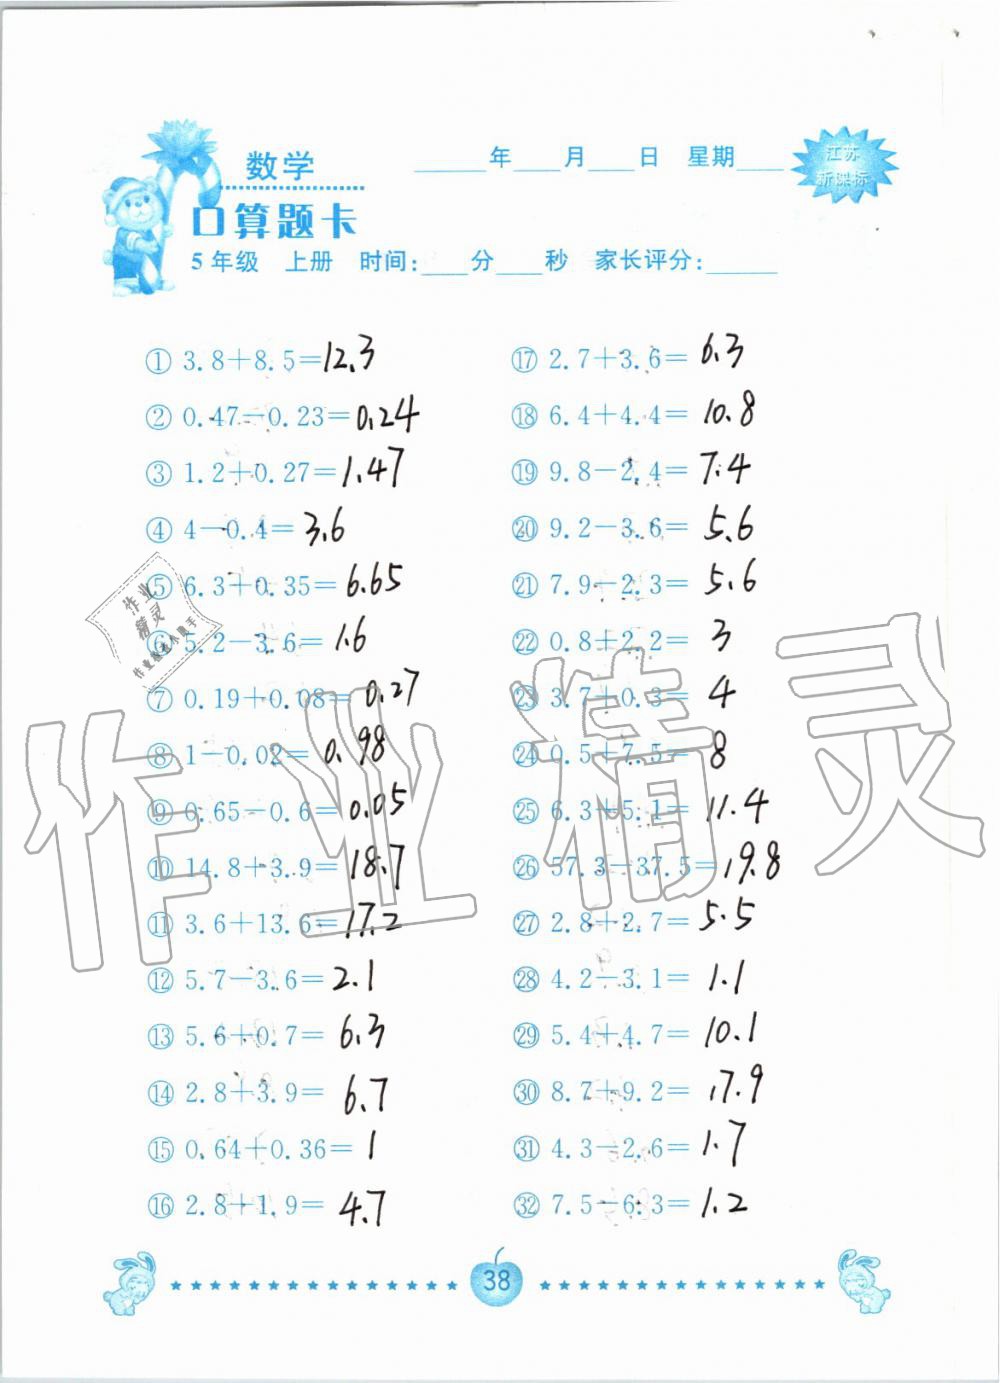 数学
____年____月____日 星期____
江苏
新课标
口算题卡
5年级 上册 时间:____分____秒 家长评分:____
① 3.8+8.5=12.3
② 0.47-0.23=0.24
③ 1.2+0.27=1.47
④ 4-0.4=3.6
⑤ 6.3+0.35=6.65
⑥ 5.2-3.6=1.6
⑦ 0.19+0.08=0.27
⑧ 1-0.02=0.98
⑨ 0.65-0.6=0.05
⑩ 14.8+3.9=18.7
⑪ 3.6+13.6=17.2
⑫ 5.7-3.6=2.1
⑬ 5.6+0.7=6.3
⑭ 2.8+3.9=6.7
⑮ 0.64+0.36=1
⑯ 2.8+1.9=4.7
⑰ 2.7+3.6=6.3
⑱ 6.4+4.4=10.8
⑲ 9.8-2.4=7.4
⑳ 9.2-3.6=5.6
㉑ 7.9-2.3=5.6
㉒ 0.8+2.2=3
㉓ 3.7+0.3=4
㉔ 0.5+7.5=8
㉕ 6.3+5.1=11.4
㉖ 57.3-37.5=19.8
㉗ 2.8+2.7=5.5
㉘ 4.2-3.1=1.1
㉙ 5.4+4.7=10.1
㉚ 8.7+9.2=17.9
㉛ 4.3-2.6=1.7
㉜ 7.5-6.3=1.2
作业
精灵
作业检查小助手
作业精灵
38